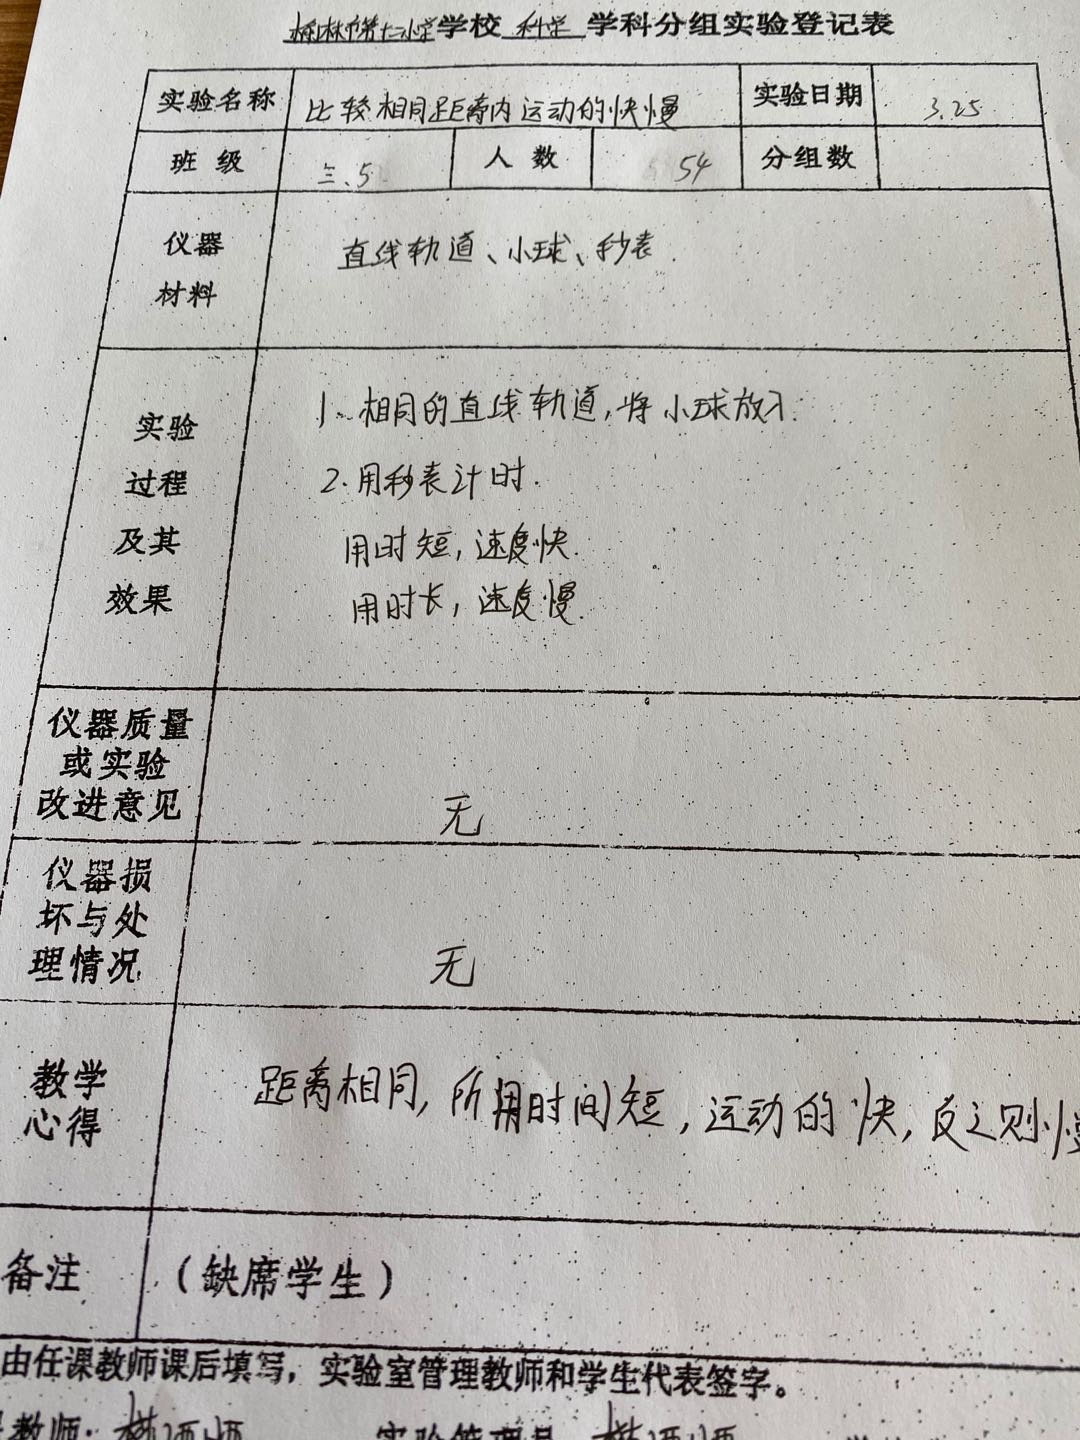 榆林市第十二小学学校 科学 学科分组实验登记表
实验名称 比较相同距离内运动的快慢 实验日期 3.25
班 级 三.5 人 数 54 分组数
仪器
材料
直线轨道、小球、秒表.
实验
过程
及其
效果
1. 相同的直线轨道,将小球放入.
2.用秒表计时.
用时短,速度快.
用时长,速度慢.
仪器质量
或实验
改进意见
无
仪器损
坏与处
理情况
无
教学
心得
距离相同,所用时间短,运动的快,反之则慢
备注 (缺席学生)
由任课教师课后填写,实验室管理教师和学生代表签字。
教师: 实验管理员